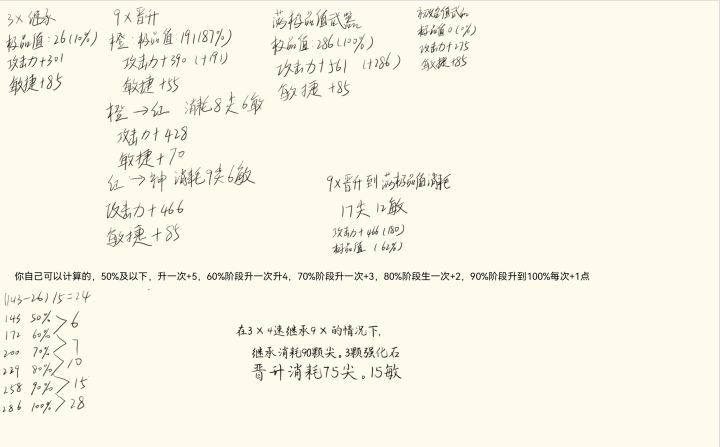 3×继承
极品值:26(10%)
攻击力+301
敏捷+85
9×晋升
橙:极品值:191(87%)
攻击力+390(+191)
敏捷+55
橙→红 消耗8尖6敏
攻击力+428
敏捷+70
红→神 消耗9尖6敏
攻击力+466
敏捷+85
满极品值武器
极品值:286(100%)
攻击力+561(+286)
敏捷+85
初始值武器
极品值0(%)
攻击力+275
敏捷+85
9×晋升到满极品值消耗
17尖12敏
攻击力+466(180)
极品值(62%)
你自己可以计算的,50%及以下,升一次+5,60%阶段升一次升4,70%阶段升一次+3,80%阶段生一次+2,90%阶段升到100%每次+1点
(143-26)/5=24
143 50%
172 60%
200 70%
229 80%
258 90%
286 100%
6
7
10
15
28
在3×4速继承9×的情况下,
继承消耗90颗尖。3颗强化石
晋升消耗75尖。15敏